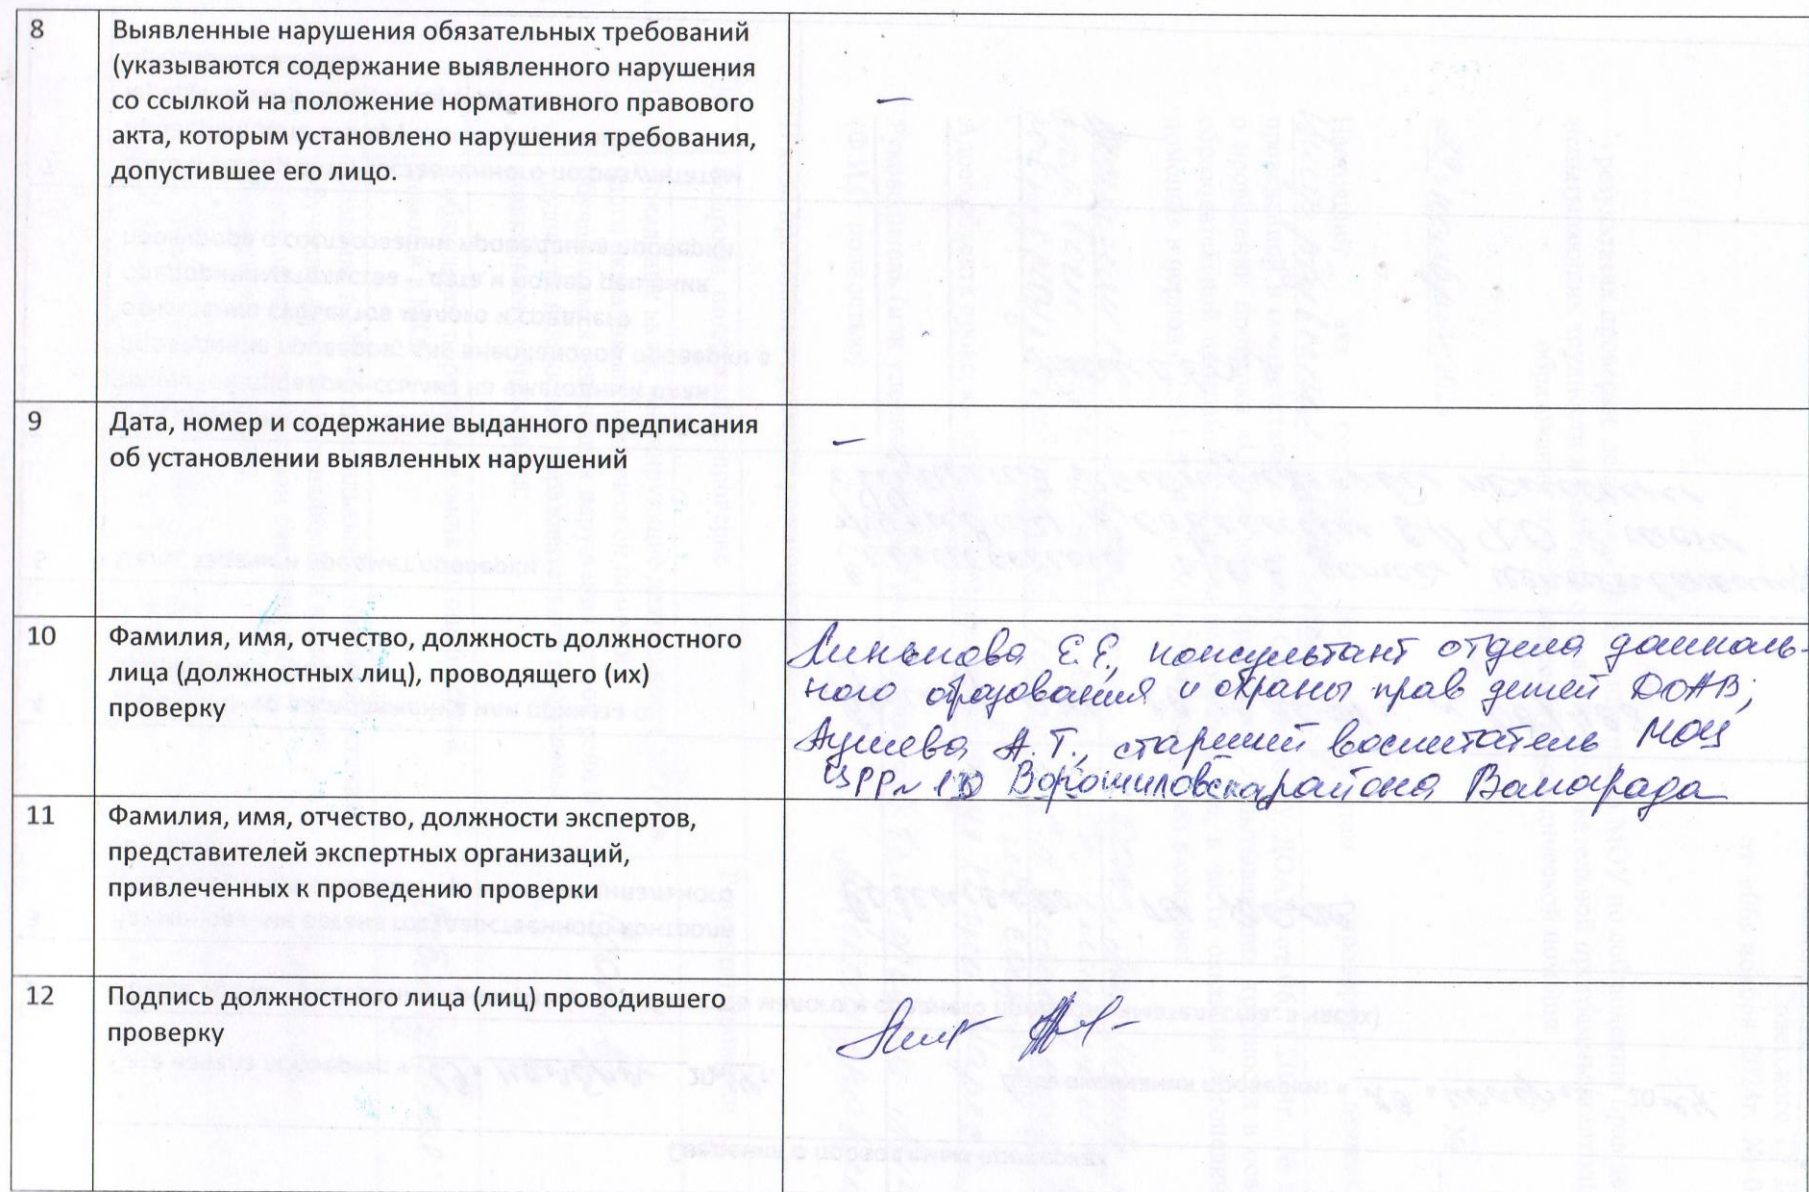 8
Выявленные нарушения обязательных требований
(указываются содержание выявленного нарушения
со ссылкой на положение нормативного правового
акта, которым установлено нарушения требования,
допустившее его лицо.
–
9
Дата, номер и содержание выданного предписания
об установлении выявленных нарушений
–
10
Фамилия, имя, отчество, должность должностного
лица (должностных лиц), проводящего (их)
проверку
Е.Е., консультант отдела дошколь-
ного образования и охраны прав детей ДОАВ;
А.Т., старший воспитатель МОУ
ЦРР № Ворошиловского района Волгограда
11
Фамилия, имя, отчество, должности экспертов,
представителей экспертных организаций,
привлеченных к проведению проверки
12
Подпись должностного лица (лиц) проводившего
проверку